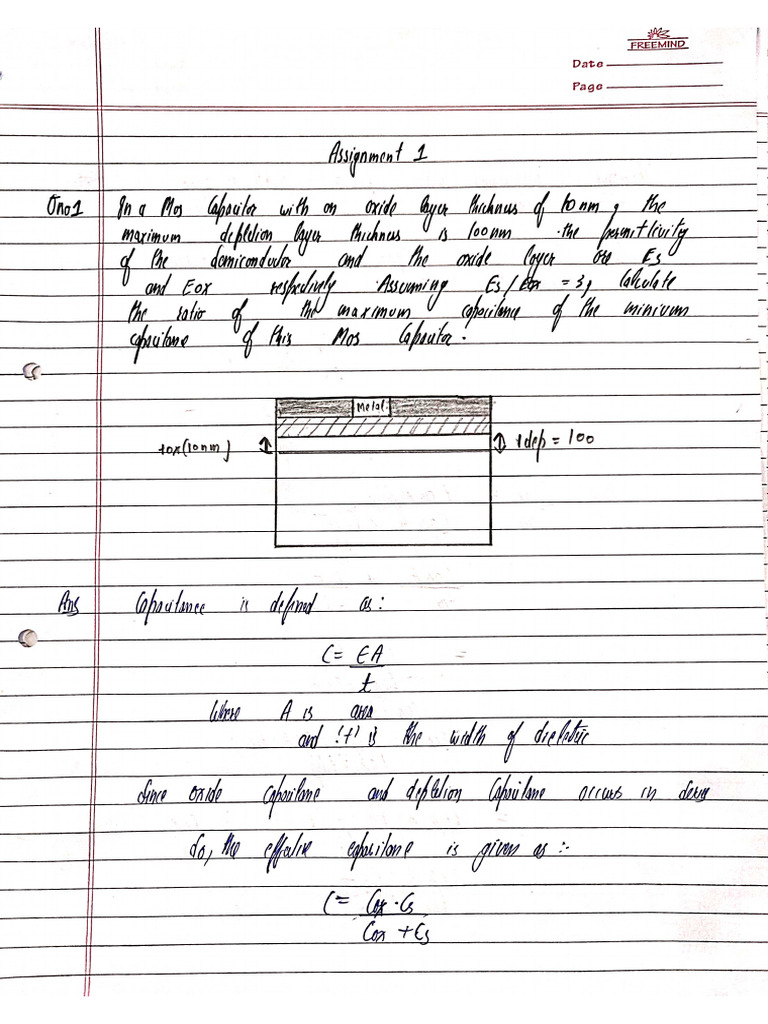 FREEMIND
Date
Page
Assignment 1
Qno1 In a Mos Capacitor with an oxide layer thickness of 10 nm, the
maximum depletion layer thickness is 100nm . the permittivity
of the semiconductor and the oxide layer are Es
and Eox respectively Assuming Es/Eox = 3, Calculate
the ratio of the maximum capacitance of the minimum
capacitance of this Mos Capacitor.
Metal
tox(10nm) tdep = 100
Ans Capacitance is defined as:
C= EA
t
Where A is area
and 't' is the width of dielectric
Since oxide capacitance and depletion Capacitance occurs in series
So, the effective capacitance is given as :-
C= Cox . Cs
Cox + Cs